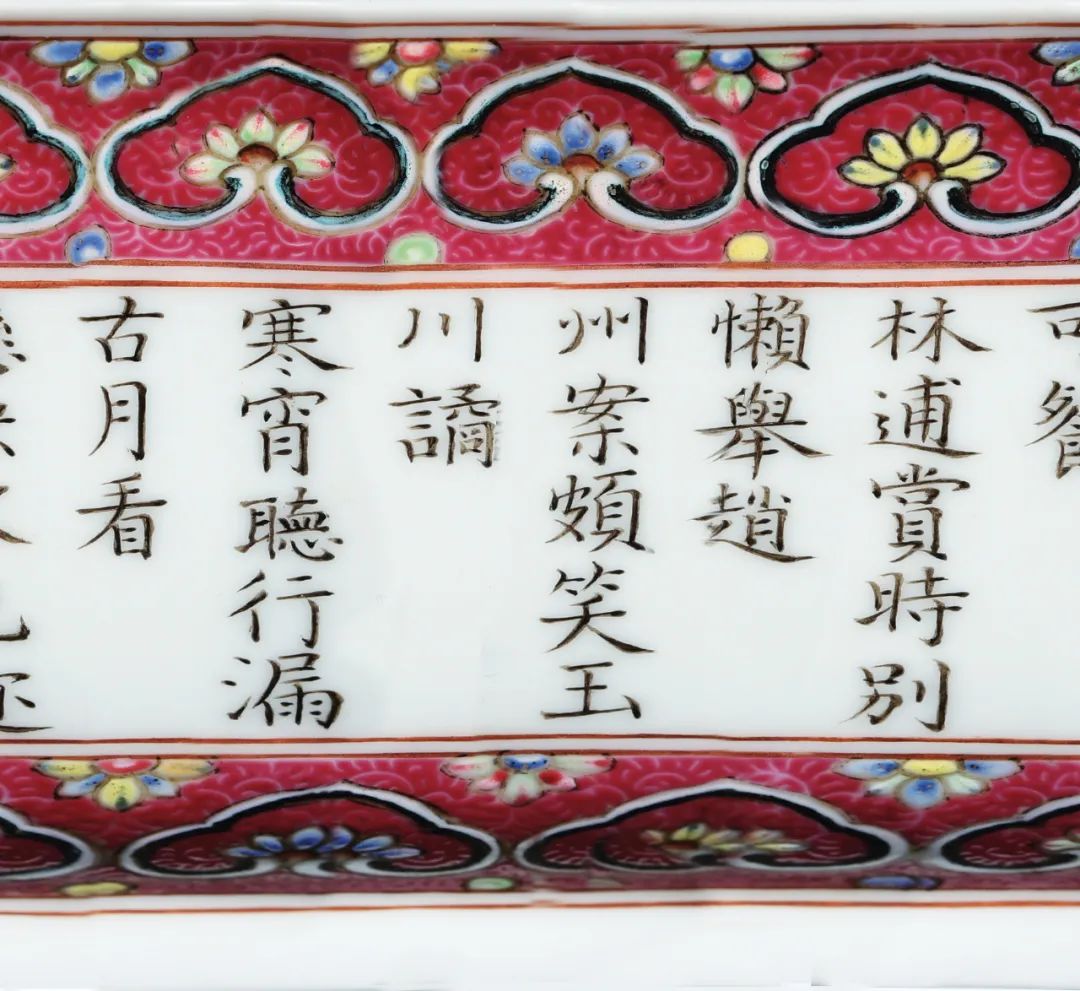 可餐
林逋賞時別
懶舉趙
州案頗笑玉
川譎
寒宵聽行漏
古月看